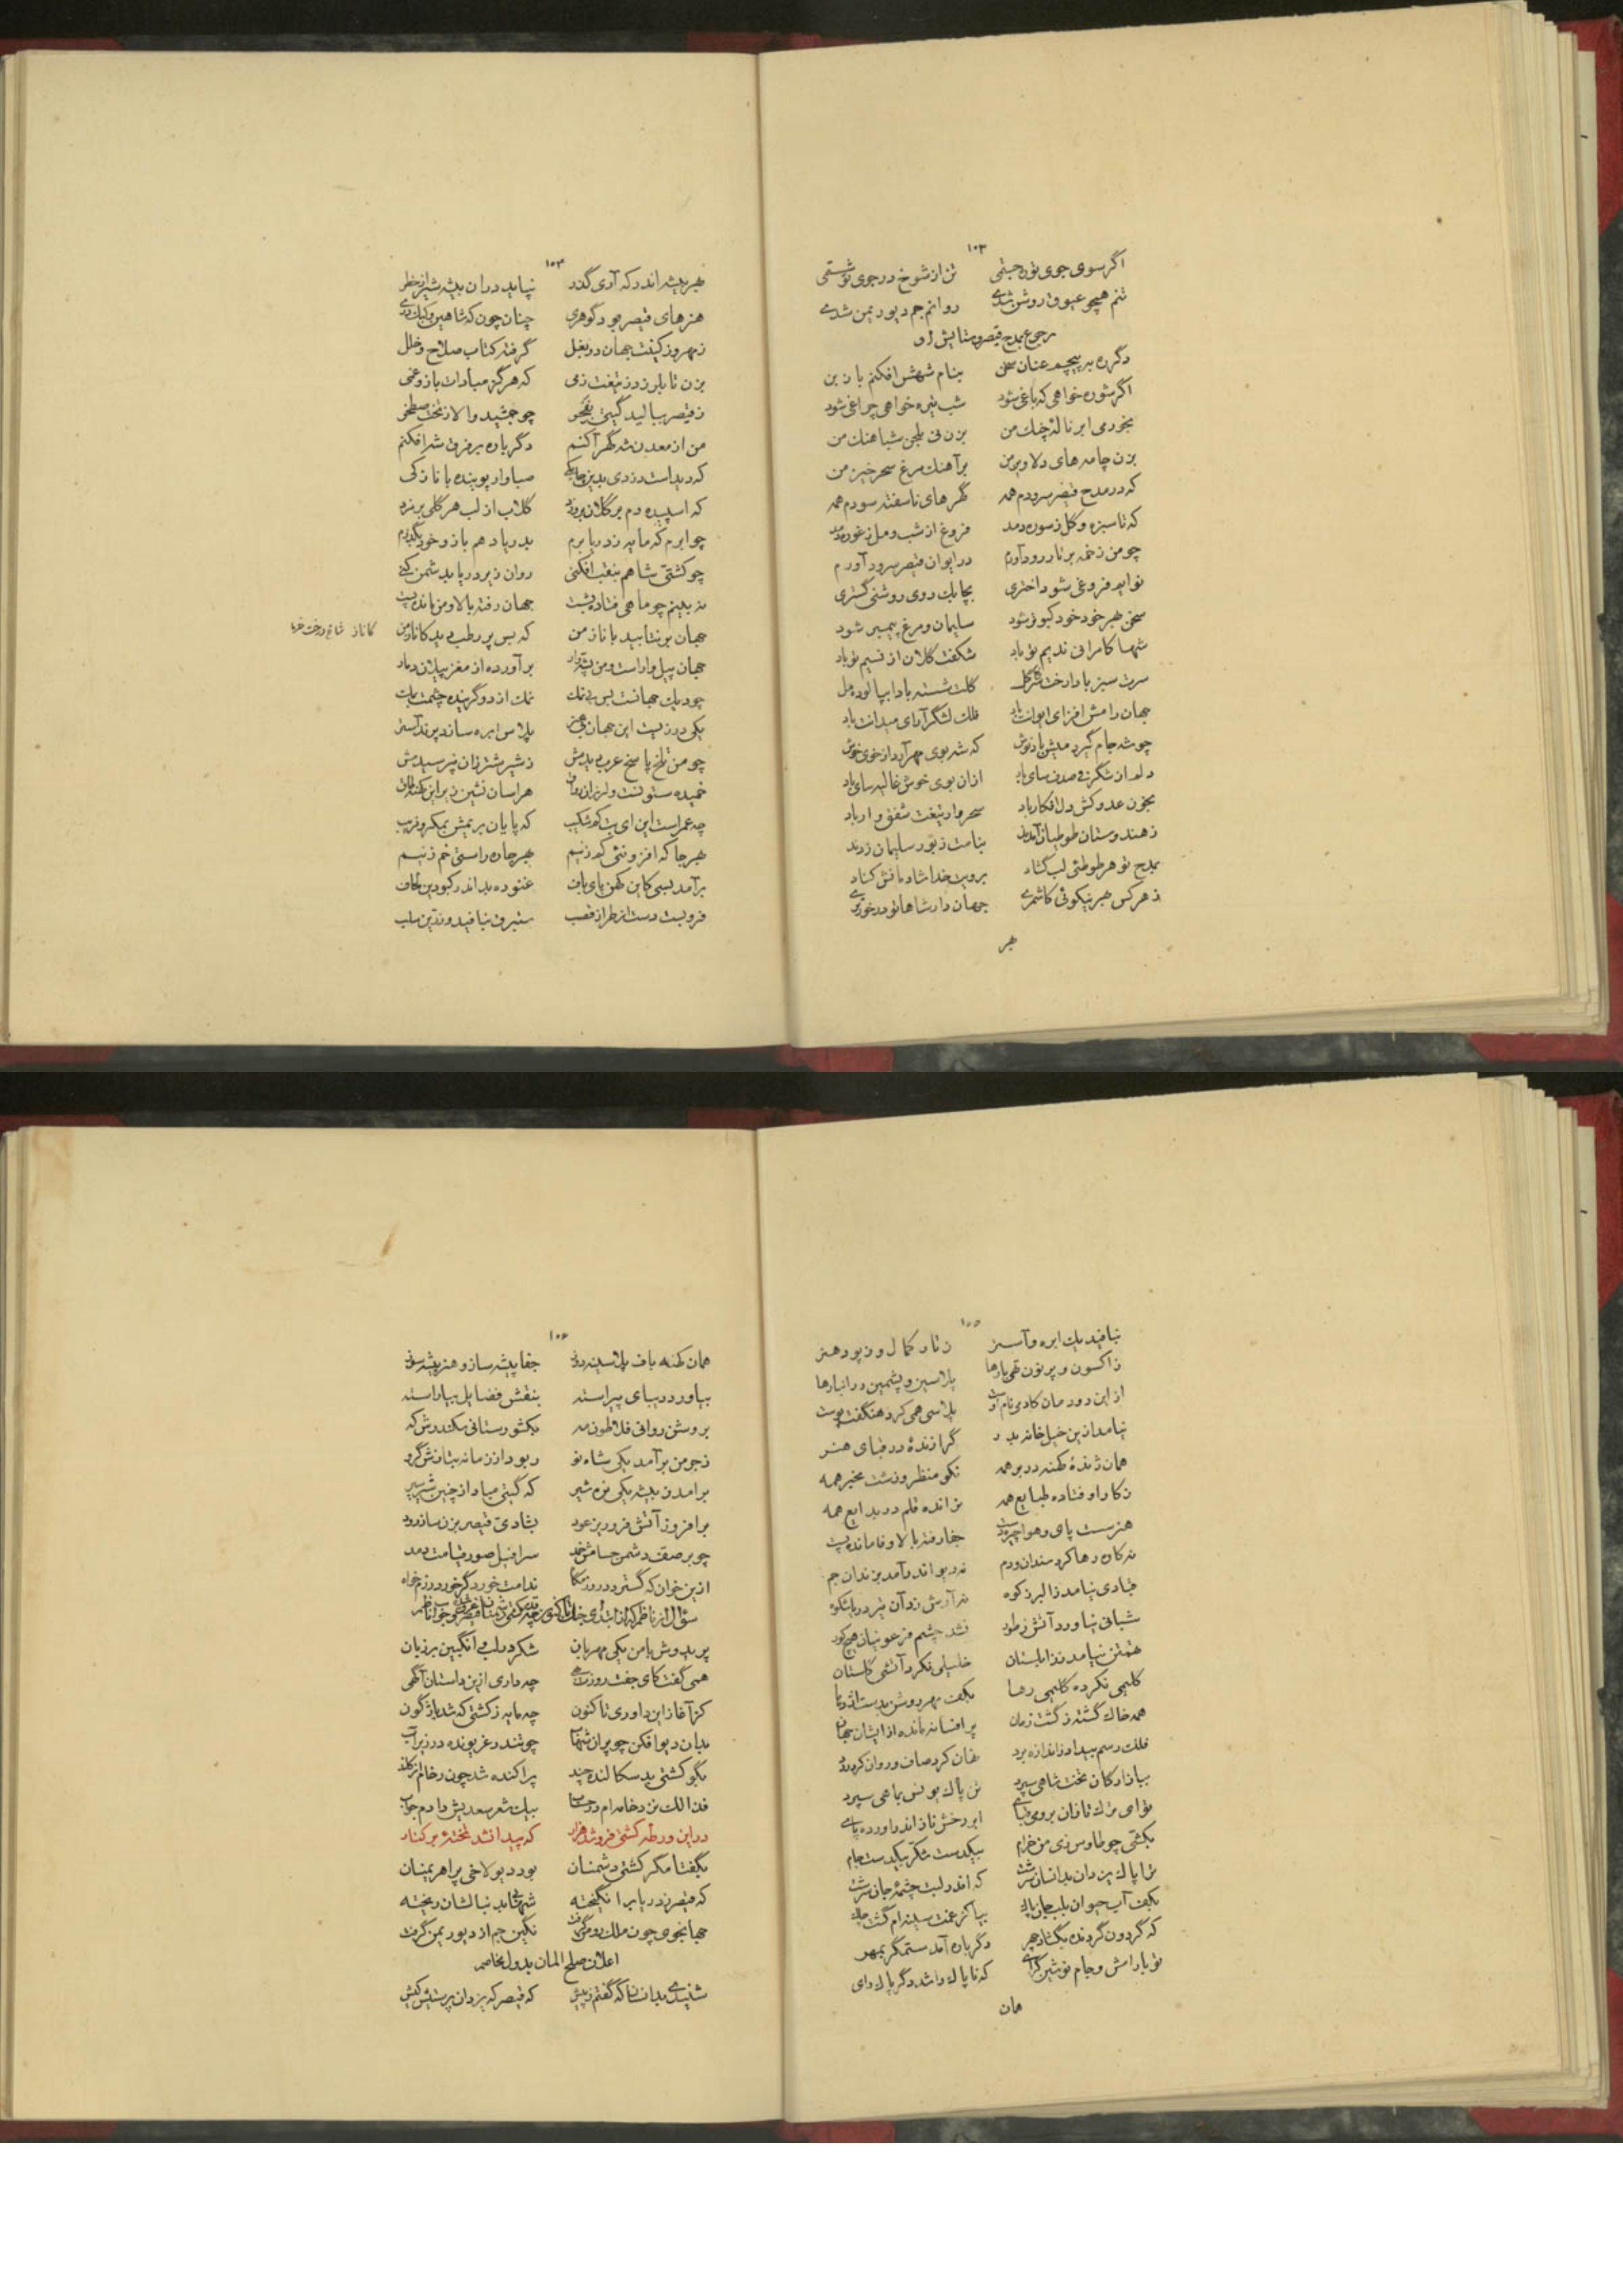 ١٠٣
اگر سوی جوی تو ره جستمی تن از شوخ در جوی تو شستمی
تنم همچو عیوق روشن شدی روانم جم دیو ریمن شدی
رجوع بمدح قیصر و ستایش او
دگر ره بر پیچم عنان سخن بنام شهنش افکنم با و بن
اگر شوره خواهی که باغی شود شب تیره خواهی چراغی شود
بخور می ابر ناله چنگ من بزن نی شباهنگ من
بزن چامه های دلاویز من بر آهنگ مرغ سحر خیز من
که در مدح قیصر سرودم همه گهرهای ناسفته سودم همه
که تا سبزه و گل ز سوره دمد فروغ از شب و مل ز غوره دمد
چو من زخمه بر تار رود آورم در ایوان قیصر سرود آورم
نوایم فروغی شود اختری بچابک روی روشنی گستری
سخن هر خود خود کبوتر شود سلیمان و مرغ پیمبر شود
شها کامرانی ندیم تو باد شکفت گلان از نسیم تو باد
سرت سبز بادا رخت گلت شسته بادا بپالوده مل
جهان رامش افزای ایوانت باد فلک لشگر آرای میدانت باد
چو شه جام گیرد منش باد نوش که شه بوی مهر آرد از خوی خوش
دلم از شگرفی صدف سای باد ازان بوی خوش غالیه سای باد
بخون عدو کش دل افکار باد سحروار تیغت شفق وار باد
ز هندوستان طوطیان آمدند بنامت زبور سلیمان زدند
بمدح تو هر طوطئی لب گشاد برویت خدا شادمانش کناد
ز هر کس بهر نیکوئی کاشمری جهاندار شاها تو در خورتری
بهر
١٠٤
بهر بیشه اندر که آری گذر نیاید در ان بیشه شیر از خطر
هنرهای قیصر بود گوهری چنان چون که شاهین و کبک دری
ز مهر وز کینت جهان در بغل گرفته کتاب صلاح و خلل
بزن تا بلرزد ز تیغت زمی که هرگز مبادات بازو غمی
ز قیصر ببالید گیتی بفخر چو جمشید والا ز تخت صطخر
من از معدن شه گهر آکنم دگر باره بر فرق شه افکنم
که دیداست دزدی بدین چابکی صبا وار پوینده با نازکی
که اسپیده دم بر گلان بر وزد گلاب از لب هر گلی بر مزد
چو ابرم که مایه ز دریا برم بدریا دهم باز و خود بگذرم
چو کشتی شاهم بتفت افکنی روان زیر دریا بدشمن کنی
نه بینم چو ماهی فتاده بشست جهان رفته بالا و من مانده پست
جهان بر نتابید با ناز من که بس پر رطب دید کاناز من
کاناز شاخ درخت خرما
جهان پیل وار است و من پشه وار بر آورده از مغز پیلان دمار
چو دیک جهانت بس بی نمک نمک از دو گرینده چشمت بمک
یکی درزیست این جهان بی هنر پلاس ابره سازد پرند آستر
چو من تلخ پاسخ عرب دیدمش ز شیر شتر زان نپرسیدمش
خمیده ستونست و لرزان رواق هراسان نشین زیر این کهنه طاق
چه عمر است این ای بت که شکیب که پایان بریمش بمکر و فریب
بهر جا که افزونئی کم زنیم بهر جاده راستی خم زنیم
بر آمد بسی کاین کهن پای باف غنوده بد اندر کبودین لحاف
فرو بست دست از طراز قصب ستبرق نبافید و زرین سلب
١٠٥
نبافید یک ابره و آستر ز تار کمال و ز پود هنر
ز اکسون و پرنون تهی بارها پلاسین و پشمین در انبارها
از این دودمان کادمی نام اوست پلاسی همی کرد هنگفت پوست
نیامد ازین خیل خانه بدر گرازندهٔ در قبای هنر
همان ژندهٔ کهنه در بر همه نکو منظر و زشت مخبر همه
ز کار اوفتاده طبایع همه نرانده قلم در بدایع همه
هنر سست پای و هوا چیره دست جفا رفته بالا وفا مانده پست
نه کاوه رها کرد سندان و دم نه دیو اندر آمد بزندان جم
قبادی نیامد ز البرز کوه نه آرش زد آن تیر در باشکوه
شبانی نیاورد آتش ز طور نشد چشم فرعونیان هیچ کور
تهمتن نیامد ز زابلستان خلیلی نکرد آتشی گلستان
کلیمی نکرده گلیمی رها بکف مهر دوش بدست اژدها
همه خاک گشته ز گشت زمان پر افسانه مانده از ایشان جهان
فلک رسم بیداد ز اندازه برد فغان کرد صاف و روان کرد درد
ببازارگان تخت شاهی سپرد تن پاک یونس بماهی سپرد
تو ای ترک تازان برومی قبای ابر رخش ناز اندر آورده پای
بکشی چو طاوس زی من خرام بیکدست شکر بیکدست جام
ترا پاک یزدان بدانسان سرشت که اندر لبت چشمهٔ جان سرشت
بکف آب حیوان بلب جان پاک بیا کز غمت سینه ام گشت چاک
که گردون گردنده بگشاد چهر دگر باره آمد ستمگر بمهر
تو با رامش و جام نوشین گرای که ناپاک را شد دگر پاک رای
همان
١٠٦
همان کهنه باف پلاسینه دوز جفا پیشه ساز و هنر پیشه سوز
بیاورد دیبای پیراسته بنقش فضایل بیاراسته
بروشن روانی فلاطون مه بکشورستانی سکندروش که
ز جرمن بر آمد یکی شاه نو ربود از زمانه بتازش گرو
برامد ز بیشه یکی نره شیر که گیتی مباد از چنین شیر سیر
برافروز آتش فرو ریز عود بشادی قیصر بزن ساز رود
چو بر صف دشمن حسامش خمد سرافیل صور قیامت دمد
ازین خوان که گسترد در روزگار ندامت خورد گر خورد رزمخواه
پریدوش با من یکی مهربان شکر در لب و انگبین بر زبان
همی گفت کای جفت روز بهی چه داری ازین داستان آگهی
کز آغاز این داوری تا کنون چه مایه ز کشتی که شد باژگون
بدان دیو افکن چو پران شهاب چو تندر غریونده در زیر آب
بگو کشتی بد سکالنده چند پراکنده شد چون رخام از کلند
بیک شعر سعدیش دادم جواب
درین ورطه کشتی فرو شد هزار که پیدا نشد تختهٔ بر کنار
بگفتا مگر کشتی دشمنان بود دیو لاخی پر اهریمنان
که قیصر ز دریا بر انگیخته شهابی بدنبالشان ریخته
جهانجوی چون ملک روم گرفت نگین جم از دیو ریمن گرفت
اعلان صلح المان بدول مخاصم
شنیدی بدانسان که گفتم ز پیش که قیصر که یزدان پرستیش کیش